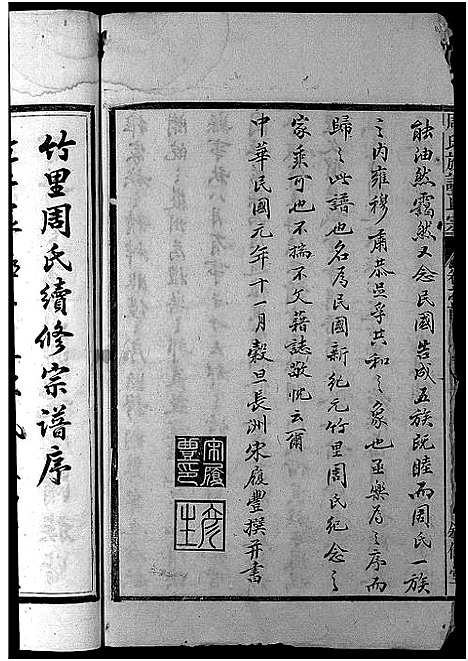 能油然靄然又念民國告成五族既睦而周氏一族
之內雍穆肅恭已孚共和之象也亟樂為之序而
歸之此譜也名為民國新紀元竹里周氏紀念之
家乘可也不揣不文藉誌敬忱云爾
中華民國元年十一月穀旦長洲宋履豐撰并書
宋履
豐印
竹里周氏續修宗譜序